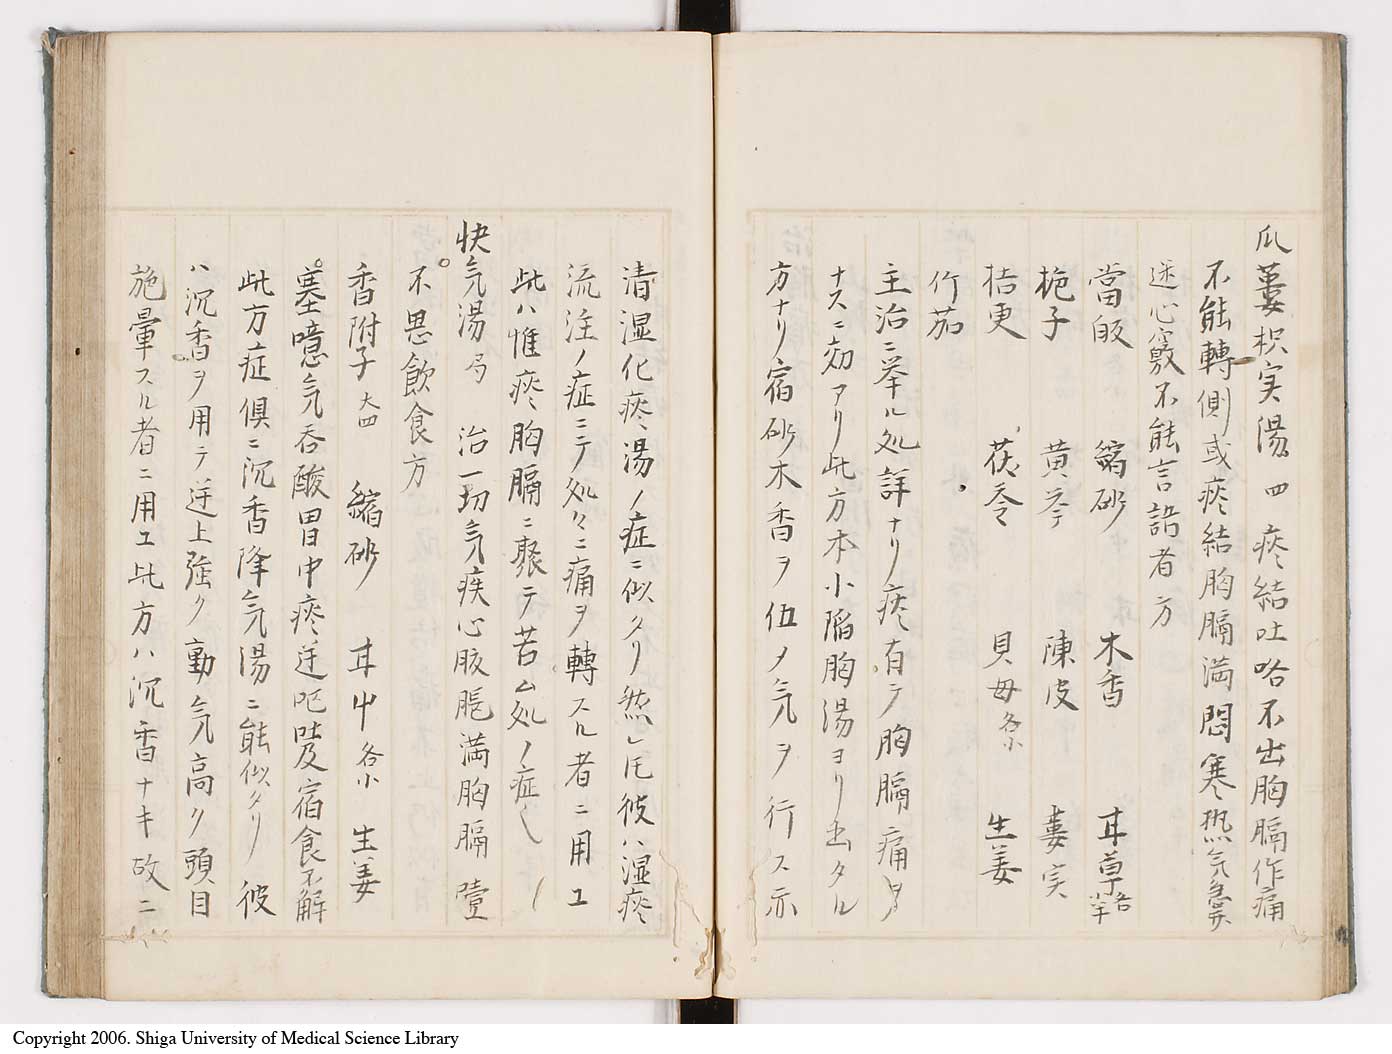 瓜蔞枳実湯 四 痰結吐咯不出胸膈作痛
不能轉側或痰結胸膈満悶寒熱気急
迷心竅不能言語者方
當皈 縮砂 木香 甘草各小半
梔子 黄芩 陳皮 蔞実
桔更 茯苓 貝母各小 生姜
竹茹
主治ニ挙ル処詳ナリ痰有テ胸膈痛ヲ
ナスニ効アリ此方本小陥胸湯ヨリ出タル
方ナリ宿砂木香ヲ伍メ気ヲ行ス示
清湿化痰湯ノ症ニ似タリ然レ𪜈彼ハ湿痰
流注ノ症ニテ処々ニ痛ヲ轉スル者ニ用ユ
此ハ惟痰胸膈ニ聚テ苦ム処ノ症也
快気湯 局 治一切気疾心腹脹満胸膈噎
不思飲食方
香附子大四 縮砂 甘艸各小 生姜
塞噫気呑酸胃中痰逆呕吐及宿食不解
此方症倶ニ沉香降気湯ニ能似タリ 彼
ハ沉香ヲ用テ逆上強ク動気高ク頭目
施暈スル者ニ用ユ此方ハ沉香ナキ故ニ
Copyright 2006. Shiga University of Medical Science Library